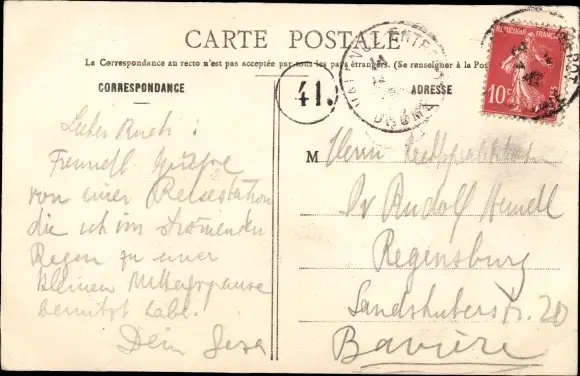 CARTE POSTALE
La Correspondance au recto n'est pas acceptée par tous les pays étrangers. (Se renseigner à la Pos
CORRESPONDANCE
41.
ADRESSE
REPUBLIQUE FRANÇAISE
10c
POSTES
Liebes
Grüsse
von einer Reisestation
die ich im strömenden
Regen zu einer
kleinen Mittagspause
benützt habe.
Dein
M Herrn
Dr Rudolf
Regensburg
Landshuterstr. 20
Bavière